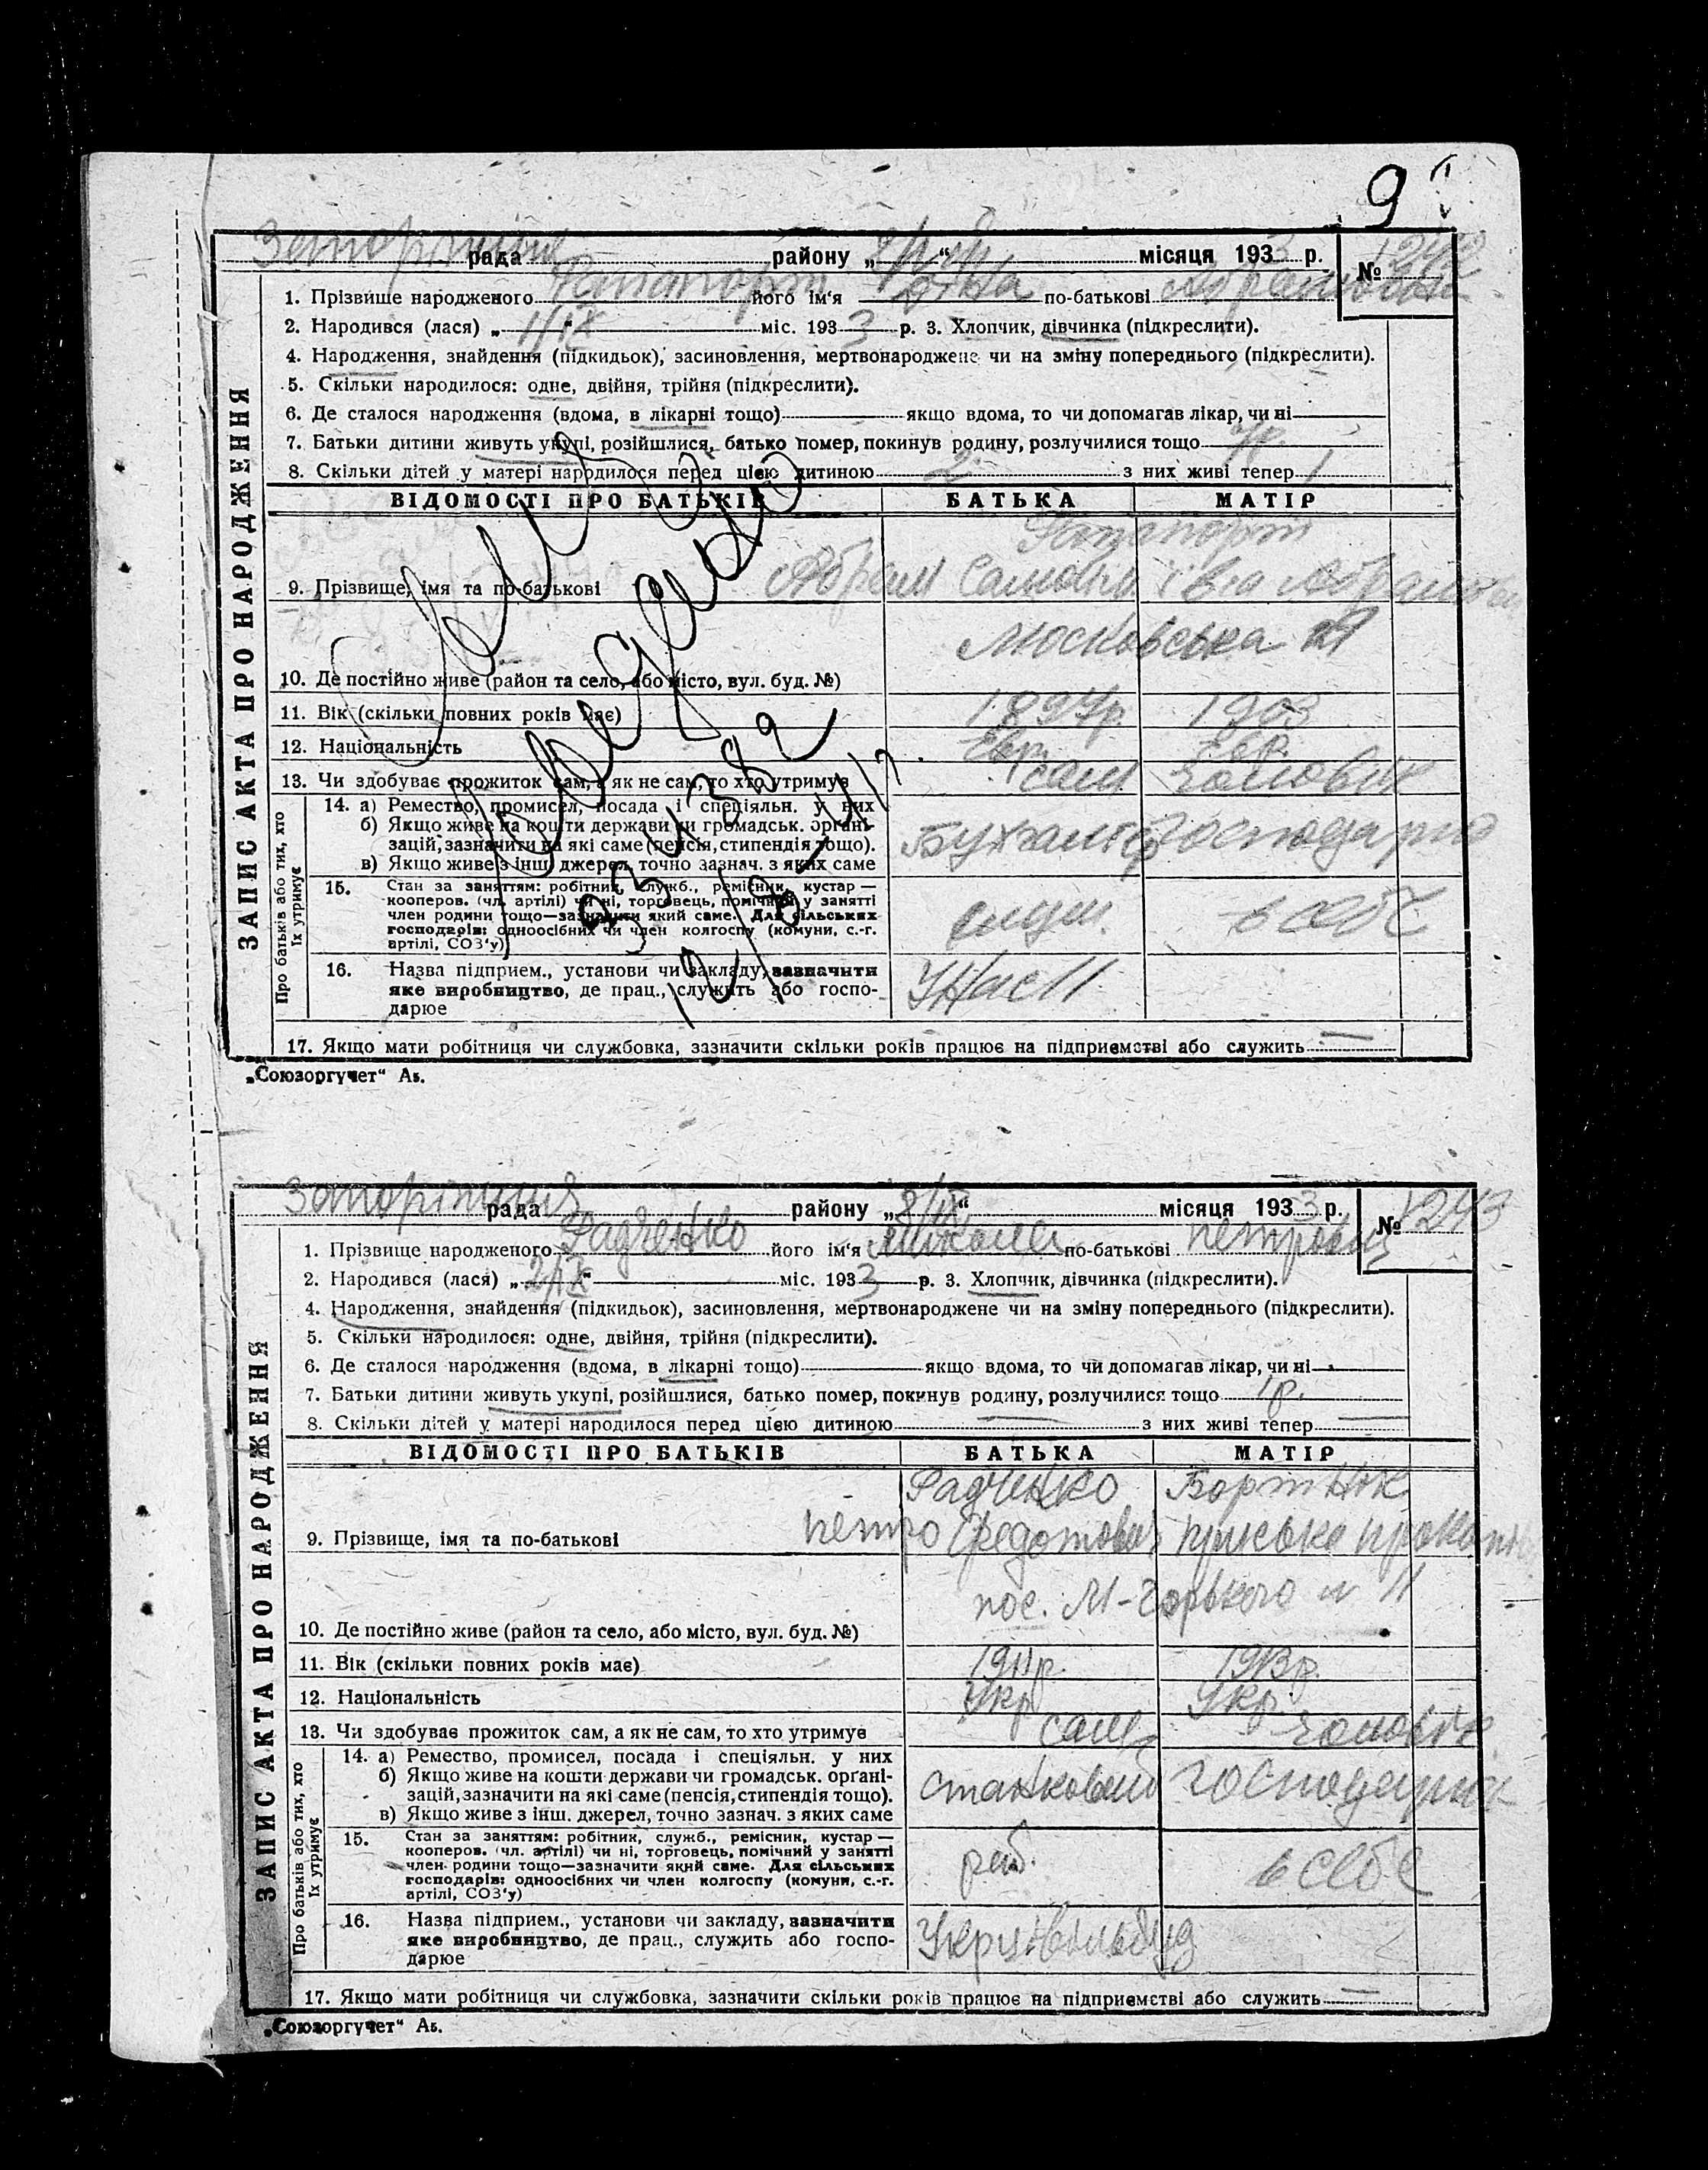 9
Запоріжжя рада району „ “ місяця 1933 р. № 1242
1. Прізвище народженого Рапапорт його ім‘я по-батькові Абрамовна
2. Народився (лася) „1/IX“ міс. 1933 р. 3. Хлопчик, дівчинка (підкреслити).
4. Народження, знайдення (підкидьок), засиновлення, мертвонароджене чи на зміну попереднього (підкреслити).
5. Скільки народилося: одне, двійня, трійня (підкреслити).
6. Де сталося народження (вдома, в лікарні тощо) якщо вдома, то чи допомагав лікар, чи ні
7. Батьки дитини живуть укупі, розійшлися, батько помер, покинув родину, розлучилися тощо
8. Скільки дітей у матері народилося перед цією дитиною 2 з них живі тепер 1
ВІДОМОСТІ ПРО БАТЬКІВ БАТЬКА МАТІР
Рапапорт
9. Прізвище, імя та по-батькові Абрам
Московська
10. Де постійно живе (район та село, або місто, вул. буд. №)
11. Вік (скільки повних років має) 1897р. 1903
12. Національність Євр. Євр.
13. Чи здобуває прожиток сам, а як не сам, то хто утримує сам чоловік
ЗАПИС АКТА ПРО НАРОДЖЕННЯ
Про батьків або тих, хто їх утримує
14. а) Ремество, промисел, посада і спеціяльн. у них
б) Якщо живе на кошти держави чи громадськ. органі-
зацій, зазначити на які саме (пенсія, стипендія тощо).
в) Якщо живе з інш. джерел, точно зазнач. з яких саме
Бухгалтер
15. Стан за заняттям: робітник, служб., ремісник, кустар —
кооперов. (чл. артілі) чи ні, торговець, помічний у занятті
член родини тощо—зазначити який саме. Для сільських
господарів: одноосібних чи член колгоспу (комуни, с.-г.
артілі, СОЗ‘у)
служ. в себе
16. Назва підприєм., установи чи закладу, зазначити
яке виробництво, де прац., служить або госпо-
дарює
17. Якщо мати робітниця чи службовка, зазначити скільки років працює на підприємстві або служить —
„Союзоргучет“ Аб.
Запоріжжя рада району „8/IX“ місяця 1933 р. № 1243
1. Прізвище народженого Радченко його ім‘я Микола по-батькові Петрович
2. Народився (лася) „2/IX“ міс. 1933 р. 3. Хлопчик, дівчинка (підкреслити).
4. Народження, знайдення (підкидьок), засиновлення, мертвонароджене чи на зміну попереднього (підкреслити).
5. Скільки народилося: одне, двійня, трійня (підкреслити).
6. Де сталося народження (вдома, в лікарні тощо) якщо вдома, то чи допомагав лікар, чи ні
7. Батьки дитини живуть укупі, розійшлися, батько помер, покинув родину, розлучилися тощо 1р.
8. Скільки дітей у матері народилося перед цією дитиною — з них живі тепер —
ВІДОМОСТІ ПРО БАТЬКІВ БАТЬКА МАТІР
Радченко Бортнюк
9. Прізвище, імя та по-батькові Петро Федотович
пос. М-Горького № 11
10. Де постійно живе (район та село, або місто, вул. буд. №)
11. Вік (скільки повних років має) 1911р. 1913р.
12. Національність Укр Укр.
13. Чи здобуває прожиток сам, а як не сам, то хто утримує сам чоловік
ЗАПИС АКТА ПРО НАРОДЖЕННЯ
Про батьків або тих, хто їх утримує
14. а) Ремество, промисел, посада і спеціяльн. у них
б) Якщо живе на кошти держави чи громадськ. органі-
зацій, зазначити на які саме (пенсія, стипендія тощо).
в) Якщо живе з інш. джерел, точно зазнач. з яких саме
15. Стан за заняттям: робітник, служб., ремісник, кустар —
кооперов. (чл. артілі) чи ні, торговець, помічний у занятті
член родини тощо—зазначити який саме. Для сільських
господарів: одноосібних чи член колгоспу (комуни, с.-г.
артілі, СОЗ‘у)
роб. в себе
16. Назва підприєм., установи чи закладу, зазначити
яке виробництво, де прац., служить або госпо-
дарює
Укрцивільбуд
17. Якщо мати робітниця чи службовка, зазначити скільки років працює на підприємстві або служить —
„Союзоргучет“ Аб.